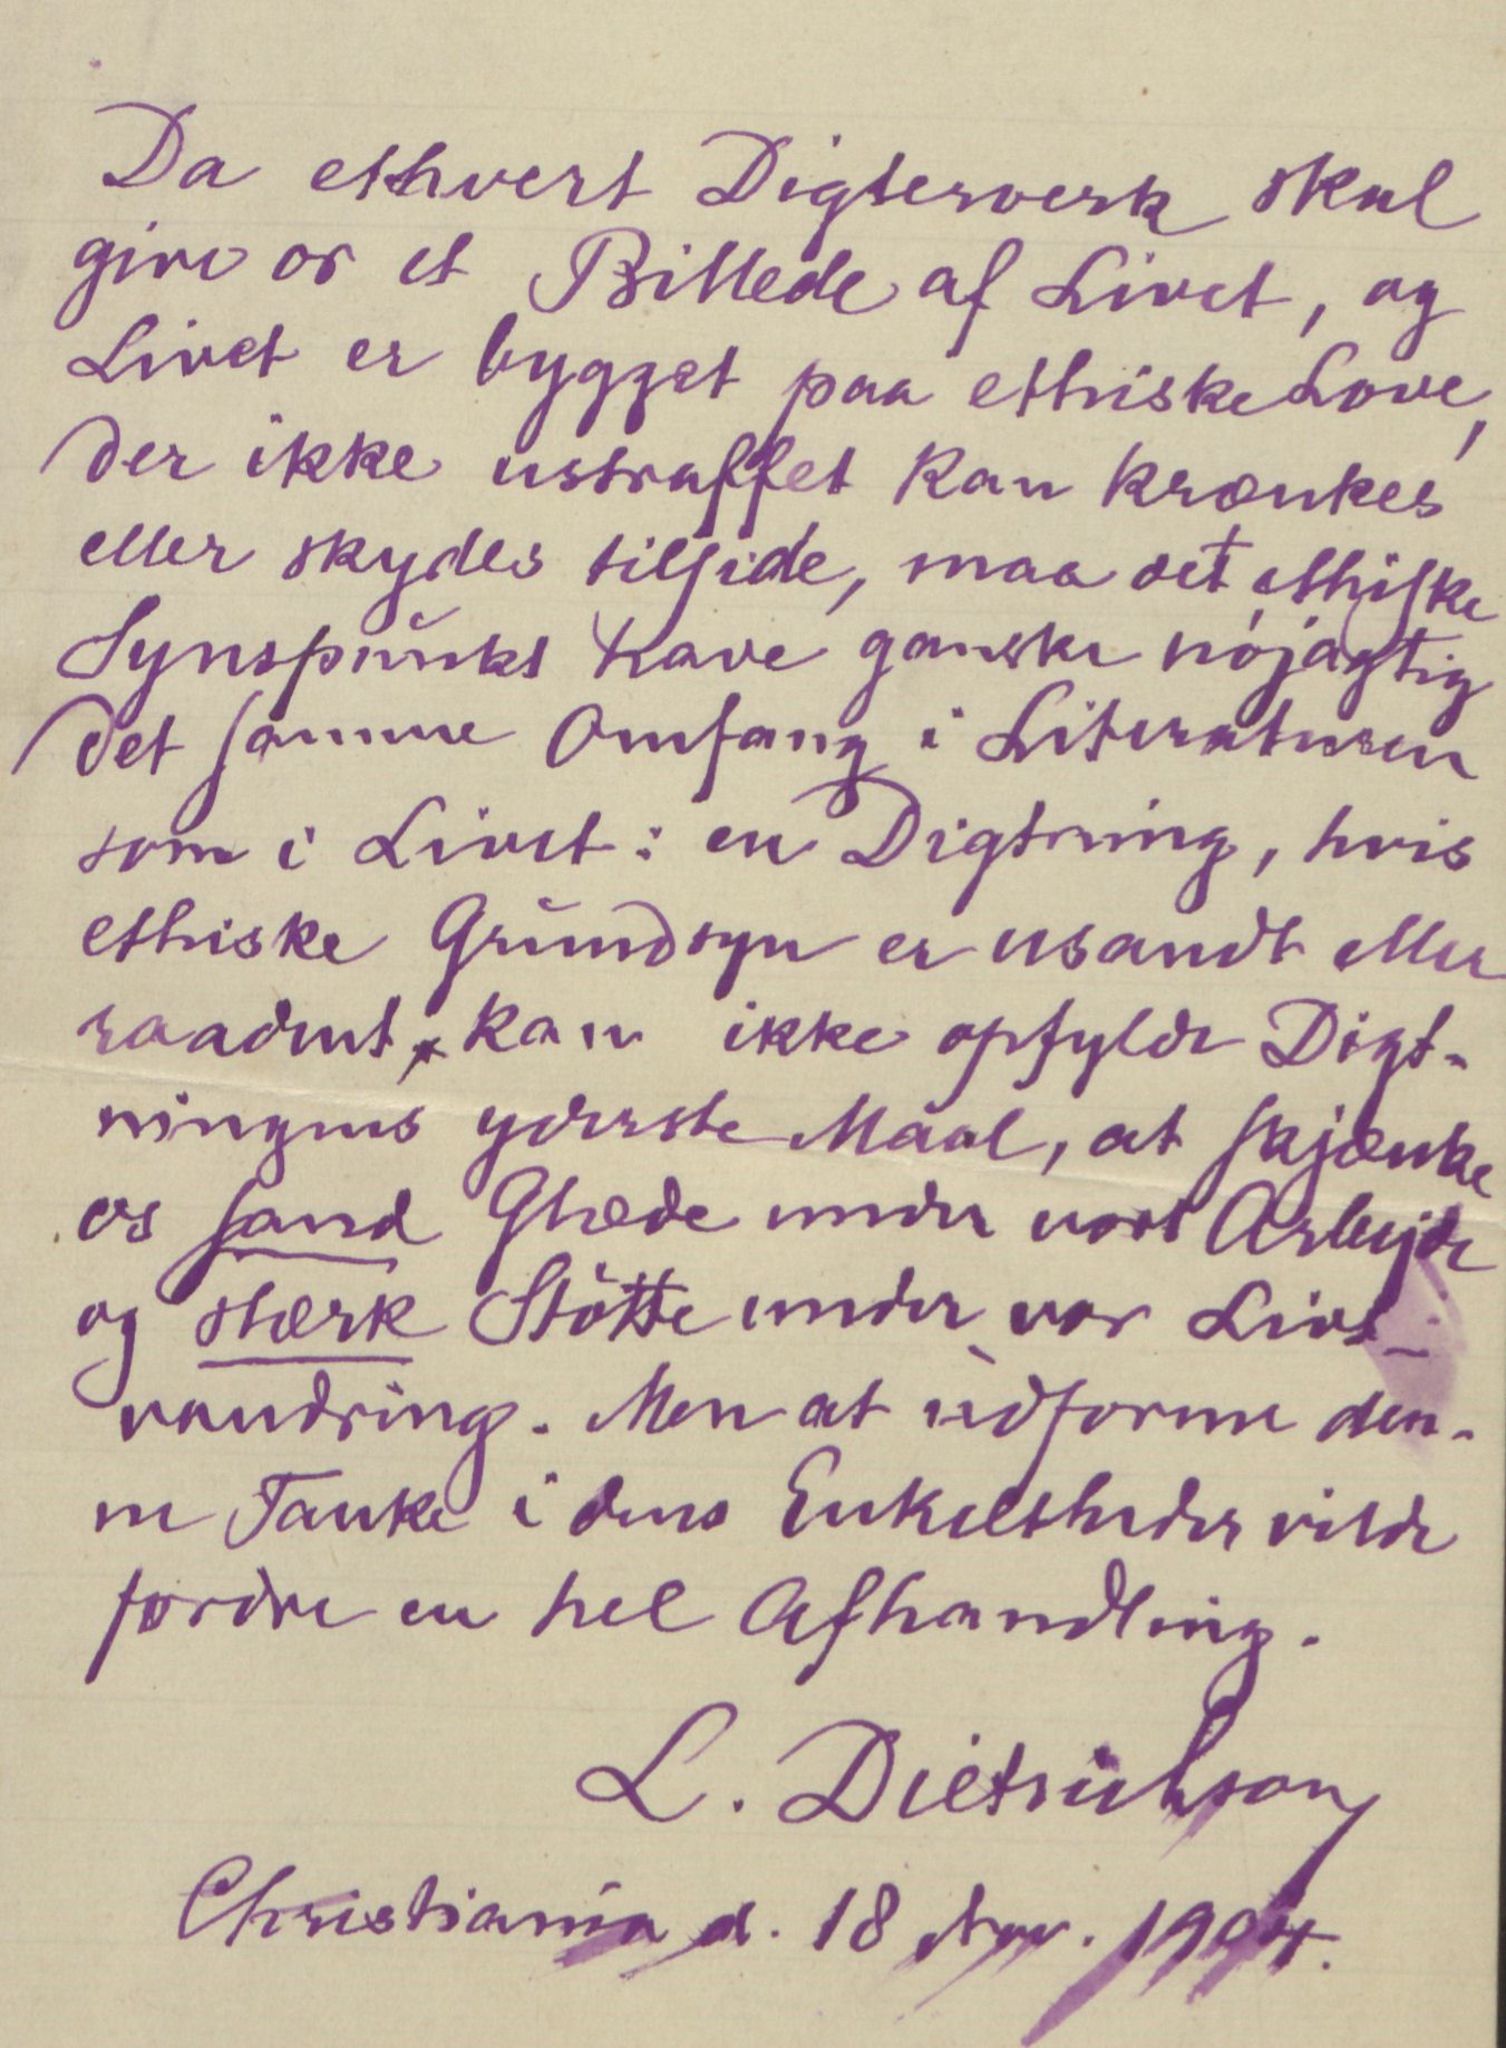 Da ethvert Digterverk skal
give os et Billede af Livet, og
Livet er bygget paa ethiske Love,
der ikke ustraffet kan krænkes
eller skydes tilside, maa det ethiske
Synspunkt have ganske nöjagtig
det samme Omfang i Literaturen
som i Livet: en Digtning, hvis
ethiske Grundsyn er usandt eller
raaddent, kan ikke opfylde Digt-
ningens yderste Maal, at skjænke
os sand Glæde under vort Arbejde
og stærk Stötte under vor Livs-
vandring. Men at udforme den-
ne Tanke i dens Enkeltheder vilde
fordre en hel Afhandling.
L. Dietrichson
Christiania d. 18 Nov. 1904.